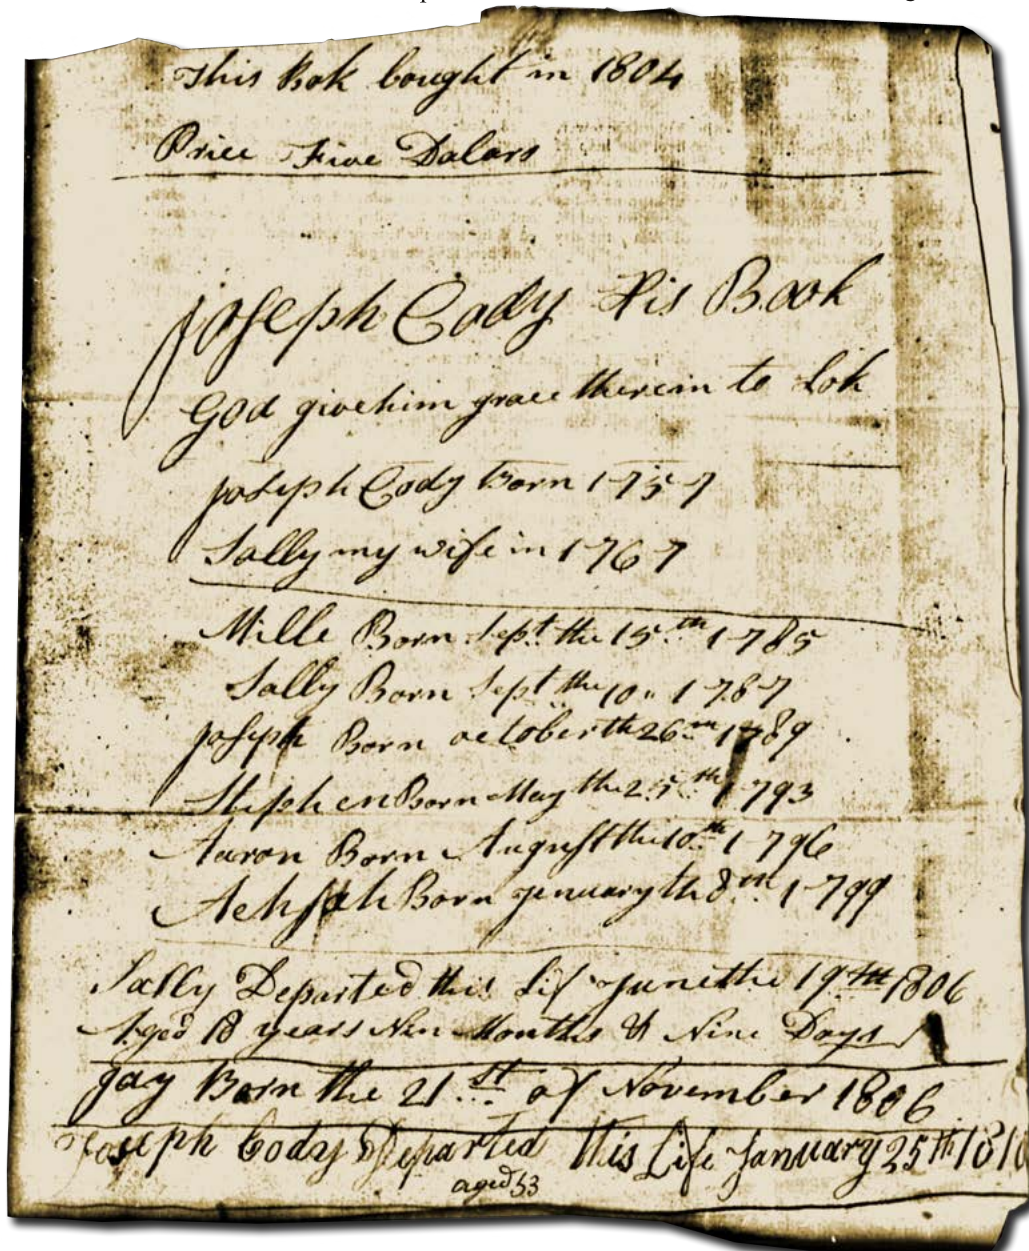 This Bok bought in 1804
Price Five Dalars
Joseph Cody His Book
God give him grace therein to Lok
Joseph Cody Born 1757
Sally my wife in 1767
Mille Born Sept. the 15th 1785
Sally Born Sept the 10th 1787
Joseph Born october th 26th 1789
Stephen Born May the 25th 1793
Aaron Born August the 10th 1796
Achsah Born Jenuary th 8th 1799
Sally Departed this Lif June the 19th 1806
Aged 18 years Nin Months & Nine Days
Jay Born the 21st of November 1806
Joseph Cody Departed this Life January 25th 1810
aged 53